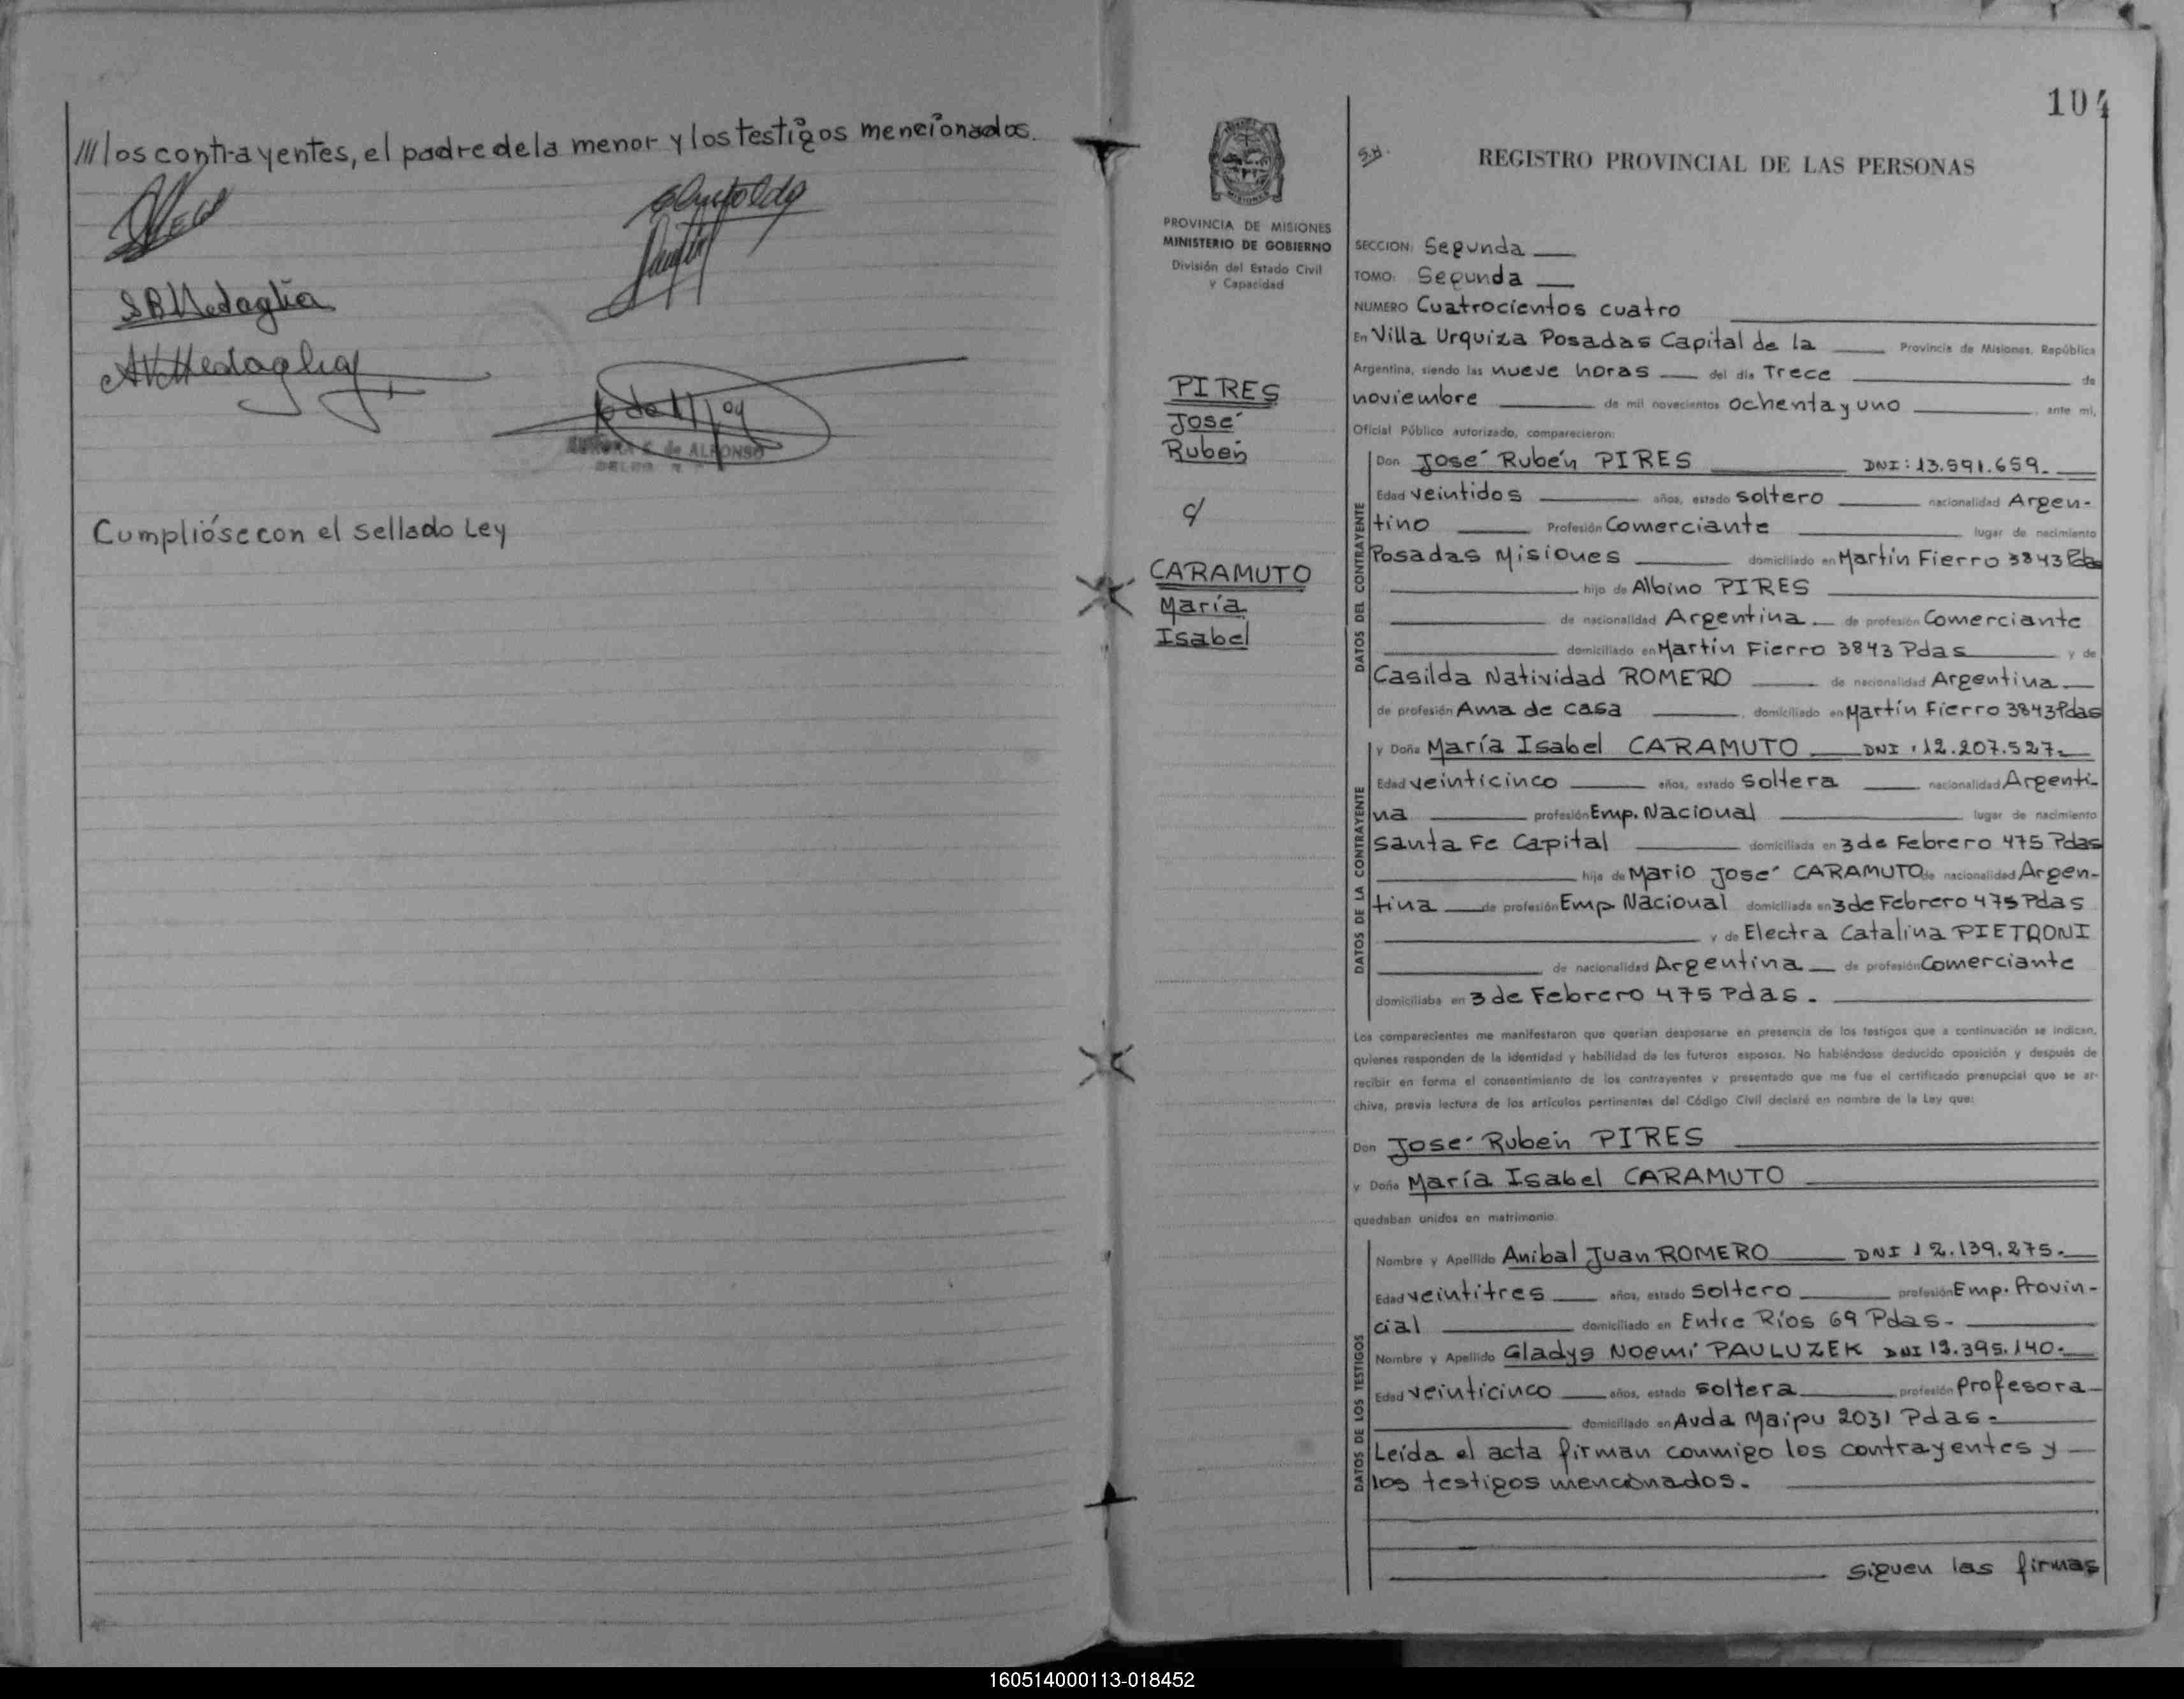 /// los contrayentes, el padre de la menor y los testigos mencionados.
SBMedaglia
AVMedaglia
de ALFONSO
Cumplióse con el sellado Ley
104
PROVINCIA DE MISIONES
MINISTERIO DE GOBIERNO
División del Estado Civil
y Capacidad
PIRES
José
Rubén
c/
CARAMUTO
María
Isabel
REGISTRO PROVINCIAL DE LAS PERSONAS
SECCION: Segunda
TOMO: Segunda
NUMERO Cuatrocientos cuatro
En Villa Urquiza Posadas Capital de la Provincia de Misiones, República
Argentina, siendo las nueve horas del día Trece de
noviembre de mil novecientos ochenta y uno, ante mí,
Oficial Público autorizado, comparecieron:
DATOS DEL CONTRAYENTE
Don José Rubén PIRES DNI: 13.591.659.
Edad veintidos años, estado soltero nacionalidad Argen-
tino Profesión Comerciante lugar de nacimiento
Posadas Misiones domiciliado en Martín Fierro 3843 Pdas
hijo de Albino PIRES
de nacionalidad Argentina de profesión Comerciante
domiciliado en Martín Fierro 3843 Pdas y de
Casilda Natividad ROMERO de nacionalidad Argentina
de profesión Ama de casa, domiciliado en Martín Fierro 3843 Pdas
DATOS DE LA CONTRAYENTE
y Doña María Isabel CARAMUTO DNI: 12.207.527.
Edad veinticinco años, estado soltera nacionalidad Argenti-
na profesión Emp. Nacional lugar de nacimiento
Santa Fe Capital domiciliada en 3 de Febrero 475 Pdas
hija de Mario José CARAMUTO de nacionalidad Argen-
tina de profesión Emp Nacional domiciliada en 3 de Febrero 475 Pdas
y de Electra Catalina PIETRONI
de nacionalidad Argentina de profesión Comerciante
domiciliaba en 3 de Febrero 475 Pdas.
Los comparecientes me manifestaron que querían desposarse en presencia de los testigos que a continuación se indican,
quienes responden de la identidad y habilidad de los futuros esposos. No habiéndose deducido oposición y después de
recibir en forma el consentimiento de los contrayentes y presentado que me fue el certificado prenupcial que se ar-
chiva, previa lectura de los artículos pertinentes del Código Civil declaré en nombre de la Ley que:
Don José Rubén PIRES
y Doña María Isabel CARAMUTO
quedaban unidos en matrimonio.
DATOS DE LOS TESTIGOS
Nombre y Apellido Anibal Juan ROMERO DNI 12.139.275.
Edad veintitres años, estado soltero profesión Emp. Provin-
cial domiciliado en Entre Ríos 69 Pdas-
Nombre y Apellido Gladys Noemí PAULUZEK DNI 12.395.140.
Edad veinticinco años, estado soltera profesión Profesora
domiciliado en Avda Maipu 2031 Pdas-
Leída el acta firman conmigo los contrayentes y
los testigos mencionados.
Siguen las firmas
160514000113-018452